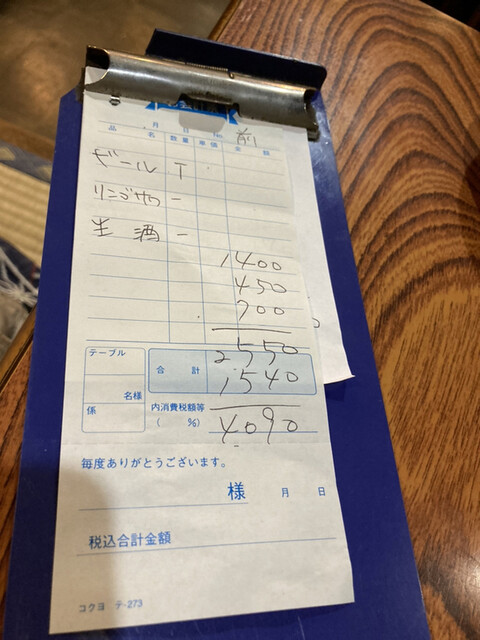 月 日 No. 前
品 名 数量 単価 金 額
ビール T
リンゴサワ 一
生酒 一
1400
450
700
2550
テーブル
合 計 1,540
名様
係
内消費税額等
( %) 4090
毎度ありがとうございます。
様 月 日
税込合計金額
コクヨ テ-273